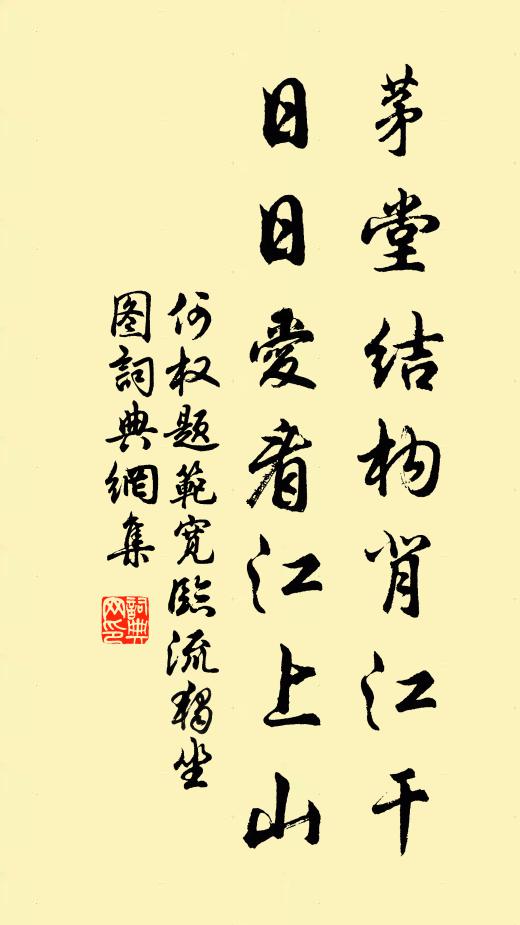 茅堂结构肖江干
日日愛看江上山
何权题範宽臨流獨坐
图詞典網集
詞典网印